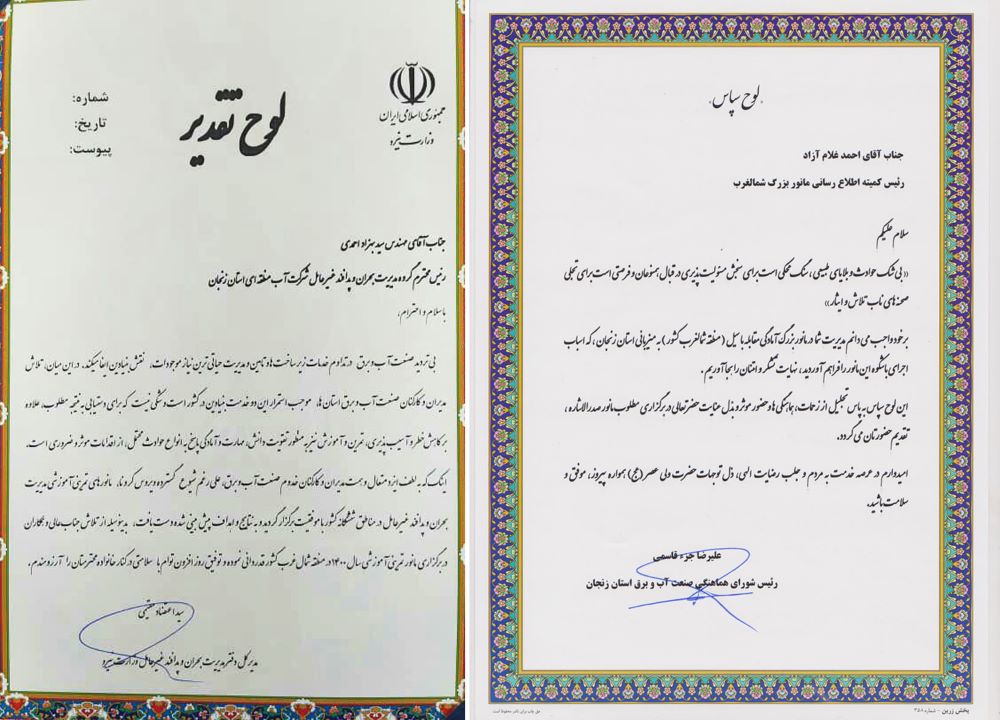 جمهوری اسلامی ایران
وزارت نیرو
لوح تقدیر
شماره:
تاریخ:
پیوست:
جناب آقای مهندس سید بهزاد احمدی
رئیس محترم گروه مدیریت بحران و پدافند غیرعامل شرکت آب منطقه ای استان زنجان
با سلام و احترام،
بی تردید صنعت آب و برق در تداوم خدمات زیرساخت ها و تامین و مدیریت حیاتی ترین نیاز موجودات، نقش بنیادین ایفا میکند. در این میان، تلاش
مدیران و کارکنان صنعت آب و برق استان ها، موجب استمرار این دو خدمت بنیادین در کشور است و شکی نیست که برای دستیابی به نتیجه مطلوب، علاوه
بر کاهش خطر و آسیب پذیری، تمرین و آموزش نیز به منظور تقویت دانش، مهارت و آمادگی پاسخ به انواع حوادث محتمل، از اقدامات موثر و ضروری است.
اینک که به لطف ایزد متعال و همت مدیران و کارکنان خدوم صنعت آب و برق، علی رغم شیوع گسترده ویروس کرونا، مانورهای تمرینی آموزشی مدیریت
بحران و پدافند غیرعامل در مناطق ششگانه کشور با موفقیت برگزار گردید و به نتایج و اهداف پیش بینی شده دست یافت، بدینوسیله از تلاش جنابعالی و همکاران
در برگزاری مانور تمرینی آموزشی سال ۱۴۰۰ در منطقه شمال غرب کشور قدردانی نموده و توفیق روز افزون توام با سلامتی در کنار خانواده محترمتان را آرزومندم.
سید اعتضاد مقیمی
مدیرکل دفتر مدیریت بحران و پدافند غیرعامل وزارت نیرو
لوح سپاس
جناب آقای احمد غلام آزاد
رئیس کمیته اطلاع رسانی مانور بزرگ شمالغرب
سلام علیکم
«بی شک حوادث و بلایای طبیعی، سنگ محکی است برای سنجش مسئولیت پذیری در قبال همنوعان و فرصتی است برای تجلی
صحنه های ناب تلاش و ایثار»
بر خود واجب می دانم مدیریت شما در مانور بزرگ آمادگی مقابله با سیل (منطقه شمالغرب کشور) به میزبانی استان زنجان، که اسباب
اجرای باشکوه این مانور را فراهم آوردید، نهایت تشکر و امتنان را بجا آوریم.
این لوح سپاس به پاس تجلیل از زحمات، هماهنگی ها و حضور موثر و بذل عنایت حضرتعالی در برگزاری مطلوب مانور صدرالاشاره،
تقدیم حضورتان می گردد.
امیدوارم در عرصه خدمت به مردم و جلب رضایت الهی، ذیل توجهات حضرت ولی عصر (عج) همواره پیروز، موفق و
سلامت باشید.
علیرضا جزء قاسمی
رئیس شورای هماهنگی صنعت آب و برق استان زنجان
پخش زرین - شماره ۳۵۸
حق چاپ برای ناشر محفوظ است